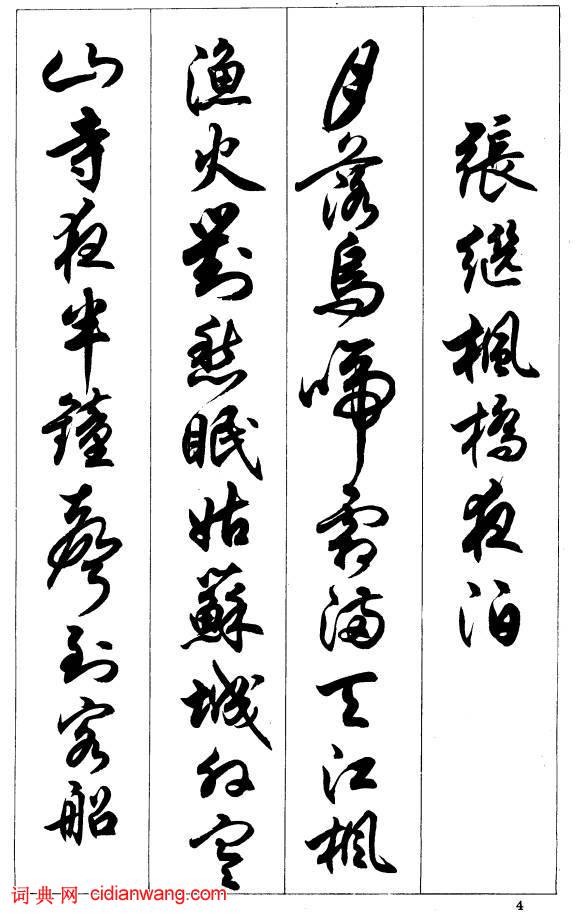 張繼楓橋夜泊
月落烏啼霜滿天江楓
漁火對愁眠姑蘇城外寒
山寺夜半鐘聲到客船
词典网 - cidianwang.com
4